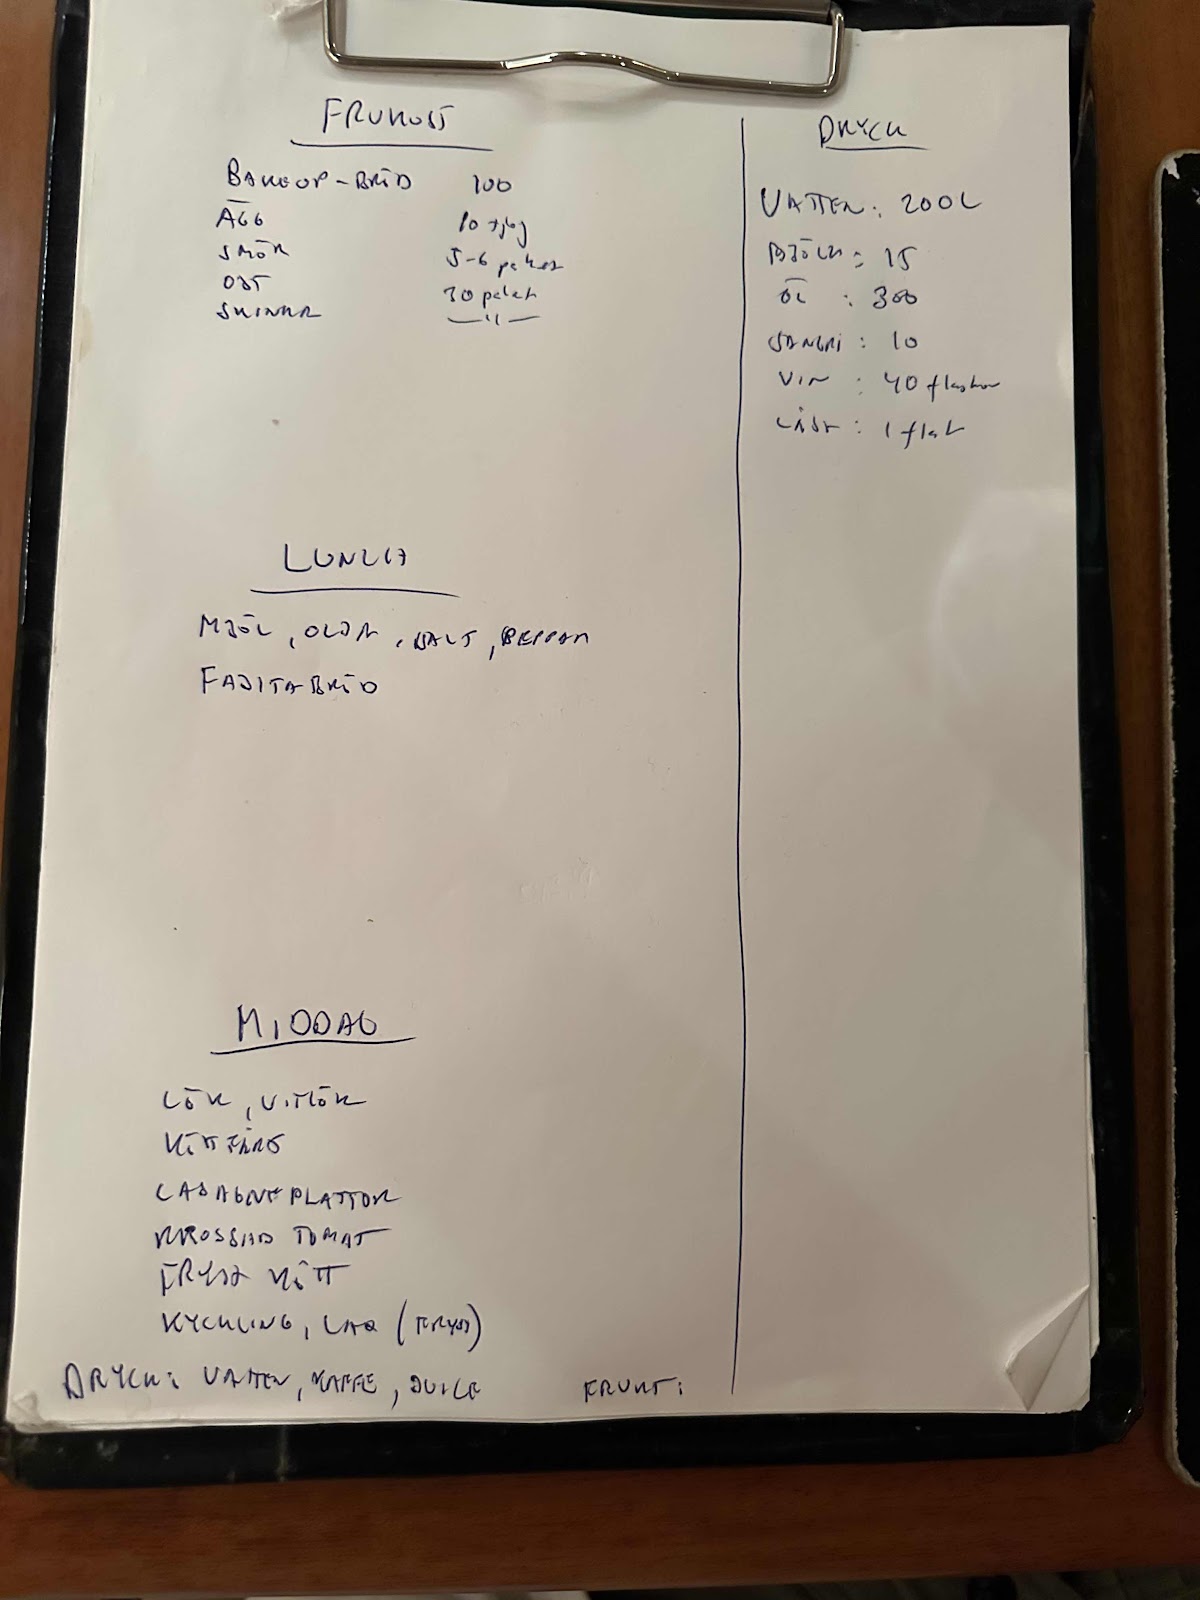 FRUKOST
BAKEOF-BRÖD 100
ÄGG 10 tjog
SMÖR 5-6 paket
OST 30 paket
SKINKA —"—
LUNCH
MJÖL, OLJA, SALT, PEPPAR
FAJITABRÖD
MIDDAG
LÖK, VITLÖK
KÖTTFÄRS
LASAGNEPLATTOR
KROSSAD TOMAT
FRYST KÖTT
KYCKLING, LAX (FRYST)
DRYCK: VATTEN, KAFFE, JUICE
FRUKT:
DRYCK
VATTEN: 200L
MJÖLK: 15
ÖL : 300
SANGRI : 10
VIN : 40 flaskor
LÄSK : 1 flak